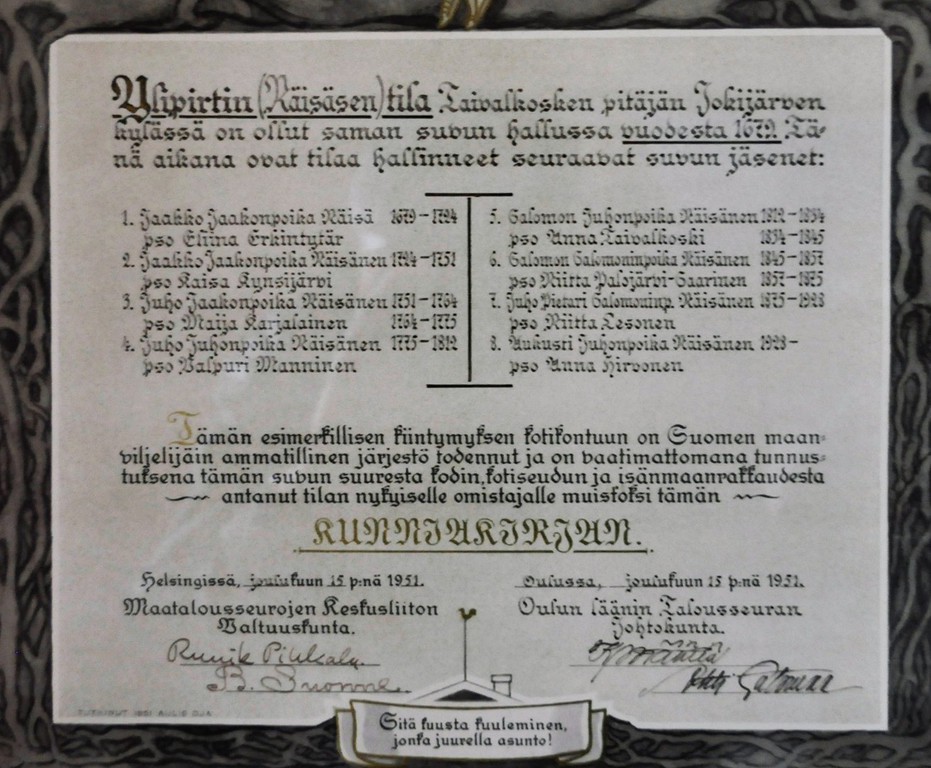 Ylipirtin (Räisäsen) tila Taivalkosken pitäjän Jokijärven
kylässä on ollut saman suvun hallussa vuodesta 1679. Tä-
nä aikana ovat tilaa hallinneet seuraavat suvun jäsenet:
1. Jaakko Jaakonpoika Räisä 1679-1724
pso Eliina Erkintytär
2. Jaakko Jaakonpoika Räisänen 1724-1751
pso Kaisa Kynsijärvi
3. Juho Jaakonpoika Räisänen 1751-1764
pso Maija Karjalainen 1764-1775
4. Juho Juhonpoika Räisänen 1775-1812
pso Valpuri Manninen
5. Salomon Juhonpoika Räisänen 1812-1834
pso Anna Taivalkoski 1834-1845
6. Salomon Salomoninpoika Räisänen 1845-1857
pso Riitta Palojärvi-Saarinen 1857-1875
7. Juho Pietari Salomoninp. Räisänen 1875-1923
pso Riitta Lesonen
8. Aukusti Juhonpoika Räisänen 1923-
pso Anna Hirvonen
Tämän esimerkillisen kiintymyksen kotikontuun on Suomen maan-
viljelijäin ammatillinen järjestö todennut ja on vaatimattomana tunnus-
tuksena tämän suvun suuresta kodin, kotiseudun ja isänmaanrakkaudesta
antanut tilan nykyiselle omistajalle muistoksi tämän
KUNNIAKIRJAN.
Helsingissä, joulukuun 15 p:nä 1951.
Maatalousseurojen Keskusliiton
Valtuuskunta.
B. Suomme
Oulussa, joulukuun 15 p:nä 1951.
Oulun läänin Talousseuran
Johtokunta.
Sitä kuusta kuuleminen,
jonka juurella asunto!